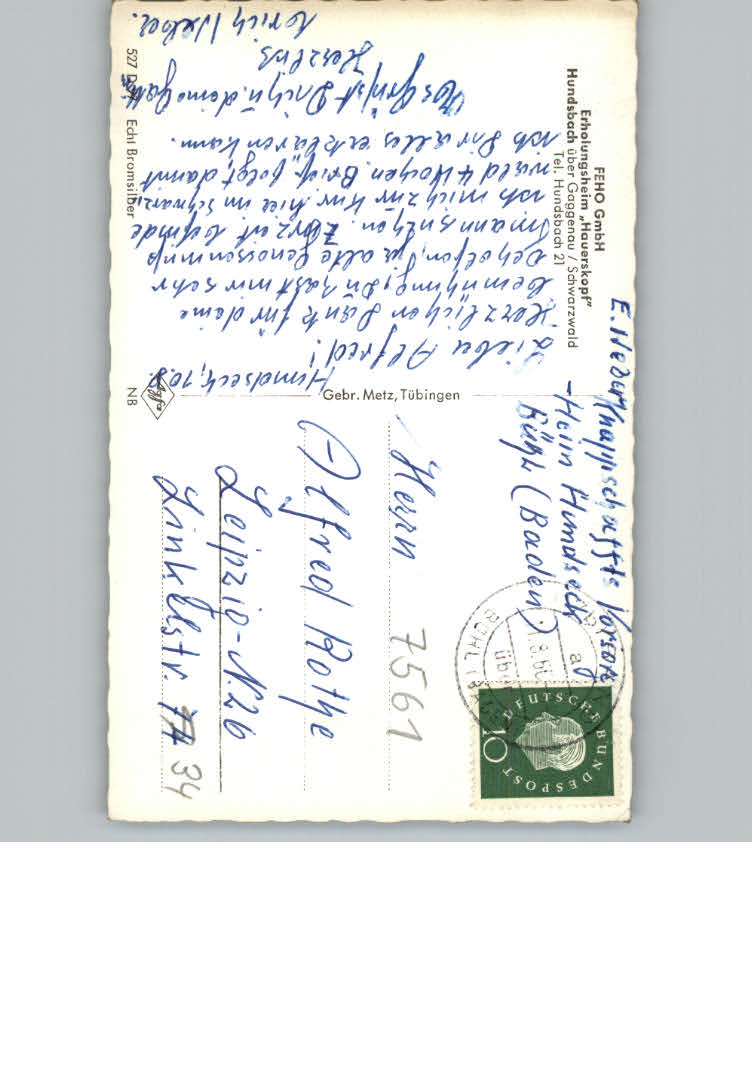 FEHO GmbH
Erholungsheim „Hauerskopf"
Hundsbach über Gaggenau / Schwarzwald
Tel. Hundsbach 21
Hundseck, 10.8.
Lieber Alfred!
Herzlichen Dank für deine
Bemühung, Du hast mir sehr
geholfen, alte Genossen
ausmachen. Zurzeit befinde
ich mich zur Kur hier im Schwarz-
wald 4 Wochen. Brief folgt damit
ich Dir alles erklären kann.
Es grüßt Dich u. deine
Herzlich
Erich Weber.
E. Weber Knappschafts
-Heim Hundseck
Bühl (Baden)
Herrn
Alfred Rothe
Leipzig-N.26
Linkelstr.
34
7561
DEUTSCHE BUNDESPOST
10
BÜHL (BADEN)
über
8.60
Gebr. Metz, Tübingen
Agfa
NB
527 Echt Bromsilber